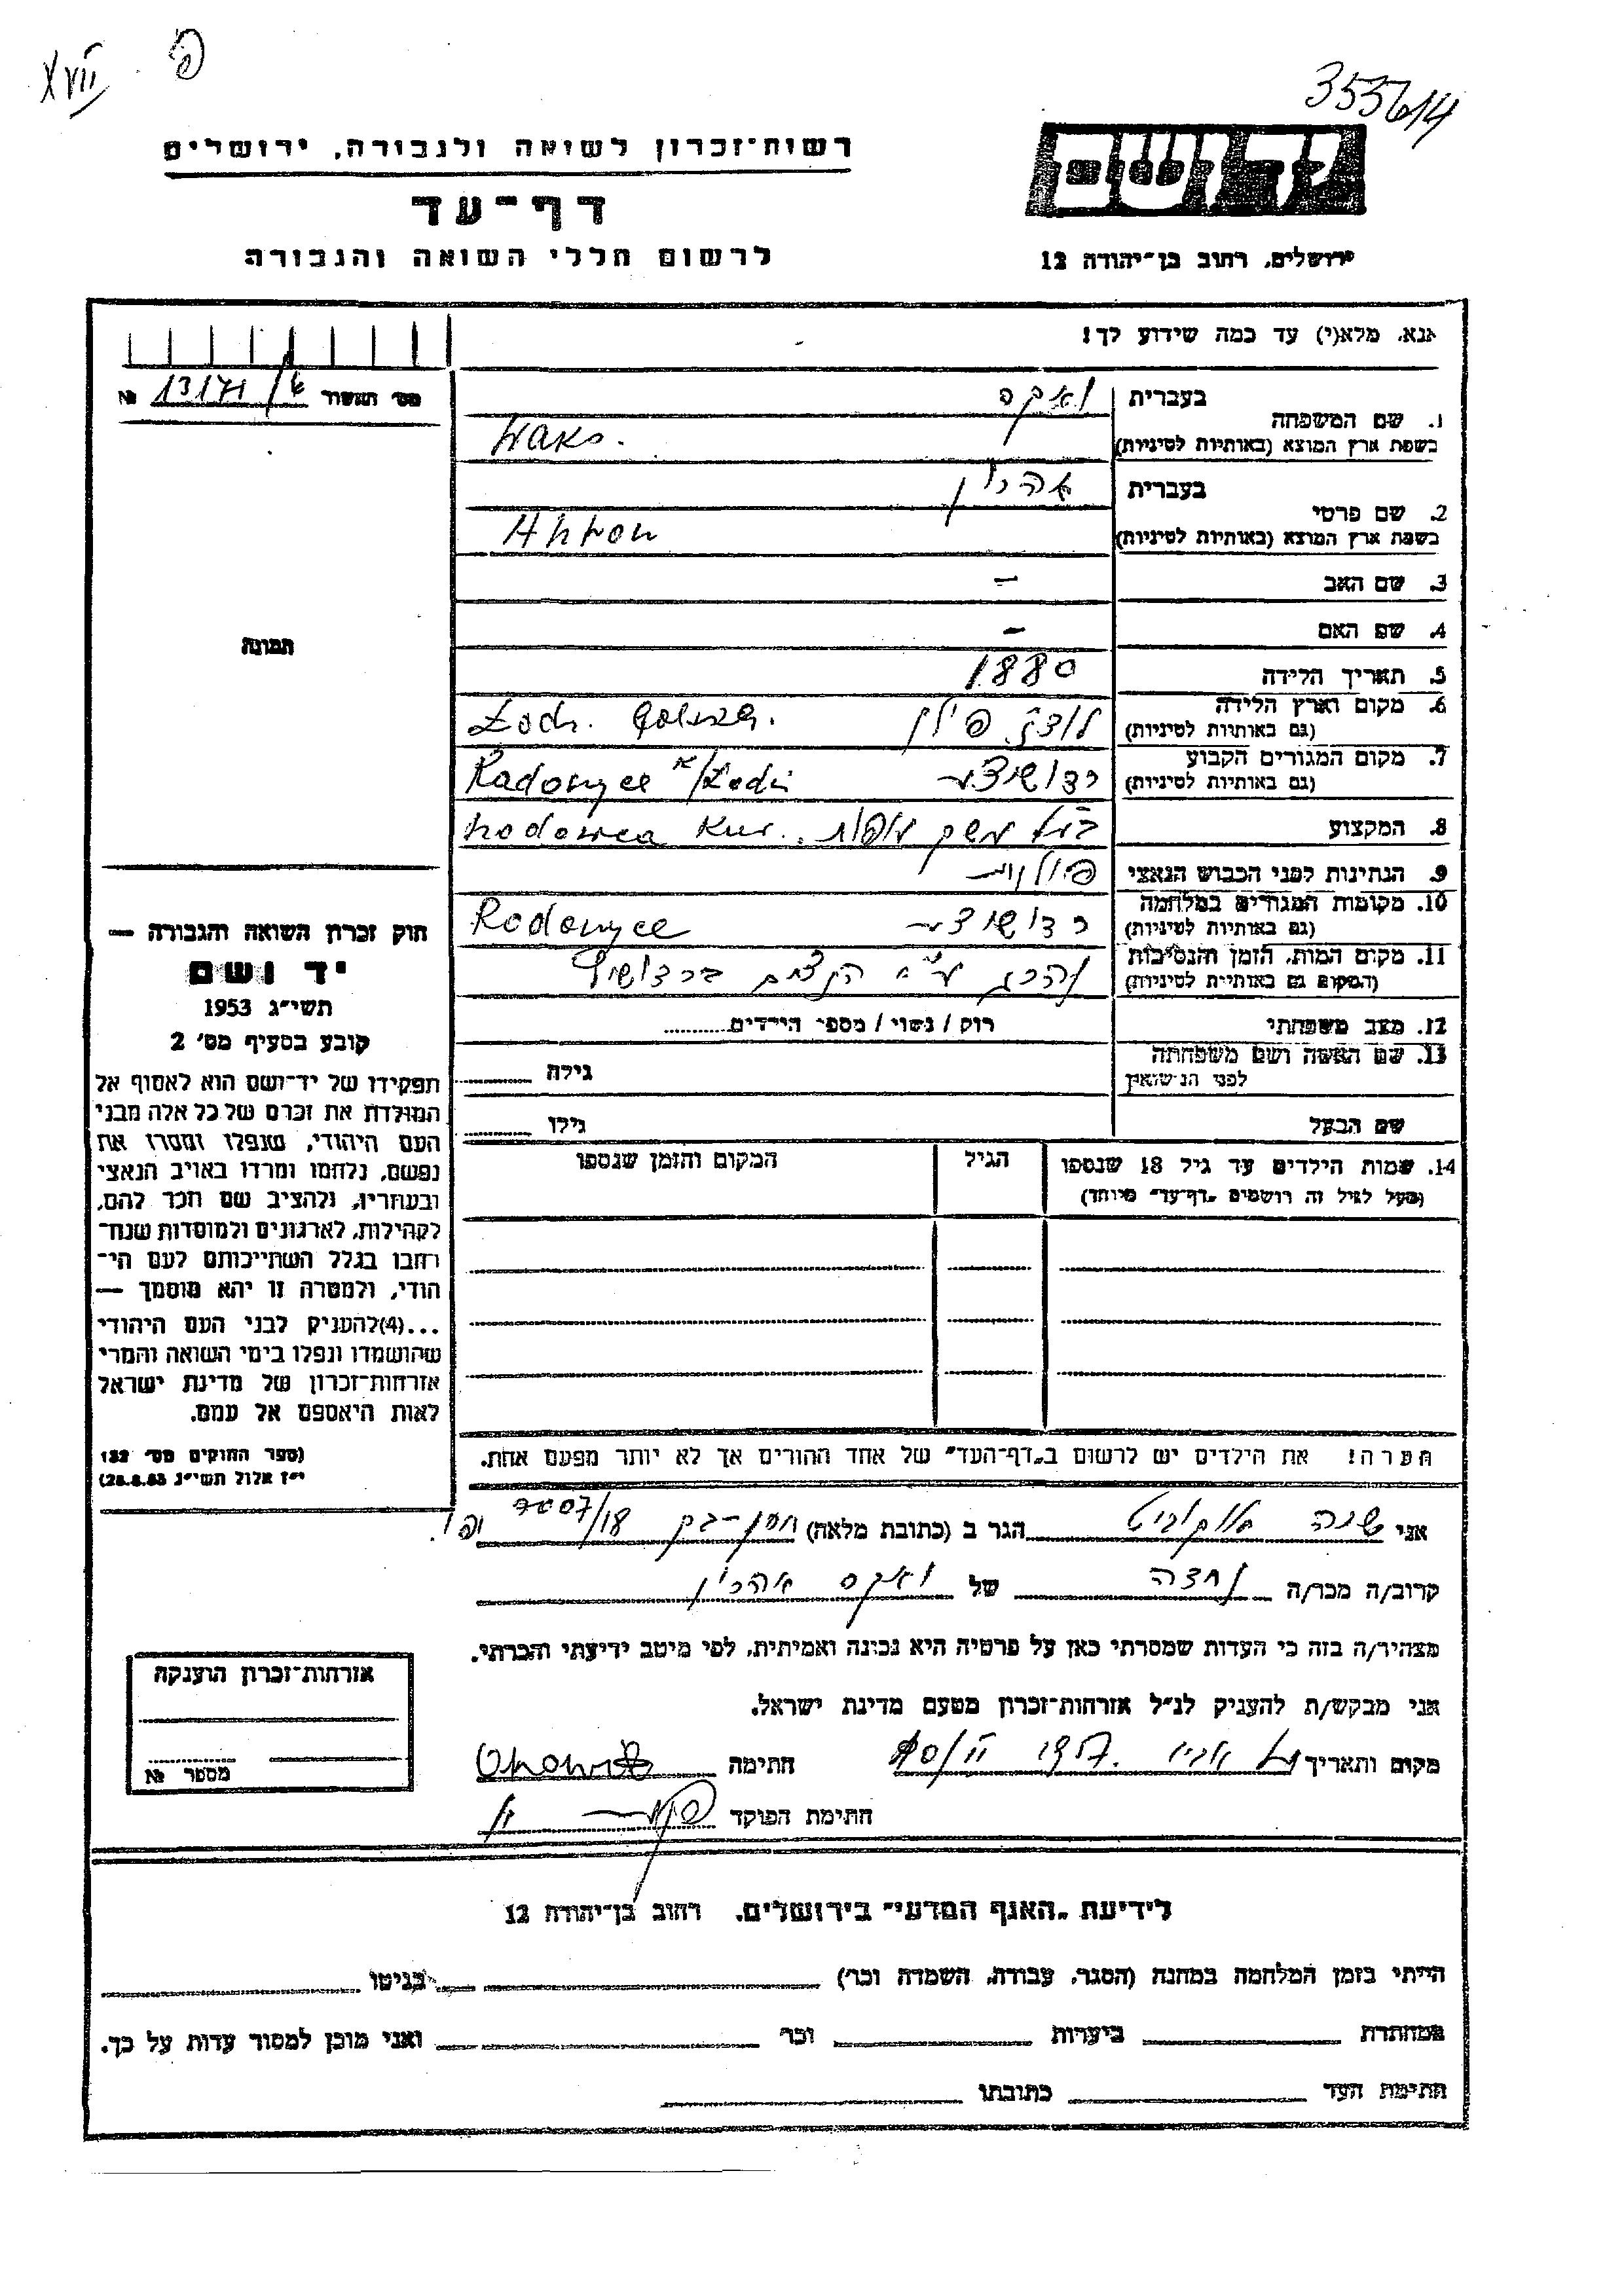 XVII פ
355614
רשות־זכרון לשואה ולגבורה, ירושלים
דף־עד
לרשום חללי השואה והגבורה
יד ושם
ירושלים, רחוב בן־יהודה 12
אנא, מלא(י) עד כמה שידוע לך!
№ 13171/
1. שם המשפחה
בעברית ואקס
בשפת ארץ המוצא (באותיות לטיניות) Waks.
2. שם פרטי
בעברית אהרון
בשפת ארץ המוצא (באותיות לטיניות) Ahron
3. שם האב –
4. שם האם –
5. תאריך הלידה 1880
6. מקום וארץ הלידה (גם באותיות לטיניות) לודז, פולין Łodz.
7. מקום המגורים הקבוע (גם באותיות לטיניות)
8. המקצוע בעל משק
9. הנתינות לפני הכבוש הנאצי פולנית
10. מקומות המגורים במלחמה (גם באותיות לטיניות)
11. מקום המות, הזמן והנסיבות (המקום גם באותיות לטיניות) נהרג ע"י הנצים
12. מצב משפחתי רוק / נשוי / מספר הילדים
13. שם האשה ושם משפחתה לפני הנישואין גילה
שם הבעל גילו
14. שמות הילדים עד גיל 18 שנספו (מעל לגיל זה רושמים „דף־עד" מיוחד)
הגיל
המקום והזמן שנספו
תמונה
חוק זכרון השואה והגבורה —
יד ושם
תשי״ג 1953
קובע בסעיף מס׳ 2
תפקידו של יד־ושם הוא לאסוף אל
המולדת את זכרם של כל אלה מבני
העם היהודי, שנפלו ומסרו את
נפשם, נלחמו ומרדו באויב הנאצי
ובעוזריו, ולהציב שם וזכר להם,
לקהילות, לארגונים ולמוסדות שנח־
רבו בגלל השתייכותם לעם הי־
הודי, ולמטרה זו יהא מוסמך —
...(4)להעניק לבני העם היהודי
שהושמדו ונפלו בימי השואה והמרי
אזרחות־זכרון של מדינת ישראל
לאות היאספם אל עמם.
(ספר החוקים מס׳ 132
י״ז אלול תשי״ג 28.8.53)
הערה! את הילדים יש לרשום ב„דף־העד" של אחד ההורים אך לא יותר מפעם אחת.
אני הגר ב (כתובת מלאה)
קרוב/ה מכר/ה נכדה של ואקס אהרון
מצהיר/ה בזה כי העדות שמסרתי כאן על פרטיה היא נכונה ואמיתית, לפי מיטב ידיעתי והכרתי.
אני מבקש/ת להעניק לנ״ל אזרחות־זכרון מטעם מדינת ישראל.
מקום ותאריך תל אביב חתימה
חתימת הפוקד
אזרחות־זכרון הוענקה
מספר №
לידיעת „האגף המדעי" בירושלים, רחוב בן־יהודה 12
הייתי בזמן המלחמה במחנה (הסגר, עבודה, השמדה וכר׳) בגיטו
במחתרת ביערות וכר׳ ואני מוכן למסור עדות על כך.
חתימת העד כתובתו